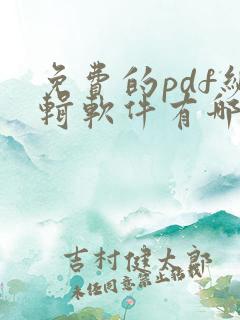 免費的pdf編
輯軟件有哪
吉村健太郎
未任同意禁止転載